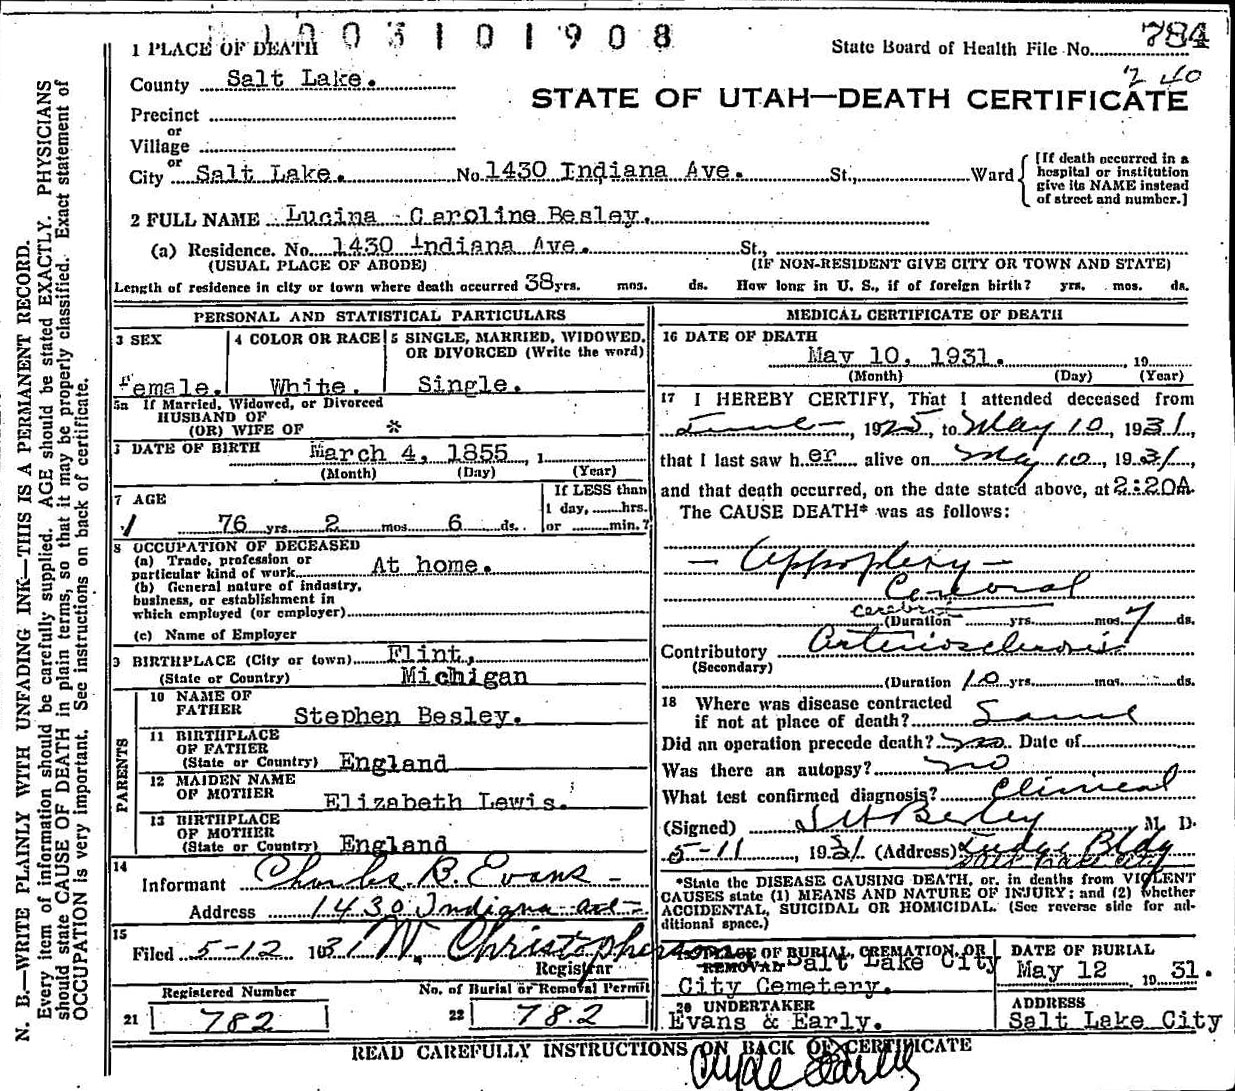 1003101908
1 PLACE OF DEATH
State Board of Health File No. 784
240
County Salt Lake.
STATE OF UTAH—DEATH CERTIFICATE
Precinct
or
Village
or
City Salt Lake. No. 1430 Indiana Ave. St., Ward
[If death occurred in a
hospital or institution
give its NAME instead
of street and number.]
2 FULL NAME Lucina Caroline Besley.
(a) Residence. No. 1430 Indiana Ave. St.,
(USUAL PLACE OF ABODE) (IF NON-RESIDENT GIVE CITY OR TOWN AND STATE)
Length of residence in city or town where death occurred 38 yrs. mos. ds. How long in U. S., if of foreign birth? yrs. mos. ds.
PERSONAL AND STATISTICAL PARTICULARS
3 SEX
Female.
4 COLOR OR RACE
White.
5 SINGLE, MARRIED, WIDOWED,
OR DIVORCED (Write the word)
Single.
5a If Married, Widowed, or Divorced
HUSBAND OF
(OR) WIFE OF *
DATE OF BIRTH March 4, 1855 , 1
(Month) (Day) (Year)
7 AGE
76 yrs 2 mos 6 ds.
If LESS than
1 day, hrs.
or min.?
8 OCCUPATION OF DECEASED
(a) Trade, profession or
particular kind of work At home.
(b) General nature of industry,
business, or establishment in
which employed (or employer)
(c) Name of Employer
9 BIRTHPLACE (City or town) Flint,
(State or Country) Michigan
PARENTS
10 NAME OF
FATHER Stephen Besley.
11 BIRTHPLACE
OF FATHER
(State or Country) England
12 MAIDEN NAME
OF MOTHER Elizabeth Lewis.
13 BIRTHPLACE
OF MOTHER
(State or Country) England
14
Informant Charles B. Evans
Address 1430 Indiana ave
15
Filed 5-12 1931 W. Christopherson
Registrar
Registered Number No. of Burial or Removal Permit
21 782 22 782
MEDICAL CERTIFICATE OF DEATH
16 DATE OF DEATH
May 10, 1931. , 19
(Month) (Day) (Year)
17 I HEREBY CERTIFY, That I attended deceased from
June , 1925, to May 10, 1931,
that I last saw her alive on May 10, 1931,
and that death occurred, on the date stated above, at 2:20A
The CAUSE DEATH* was as follows:
Appoplexy
Cerebral
(Duration yrs. mos. 7 ds.
Contributory Arteriosclerosis
(Secondary)
(Duration 10 yrs. mos. ds.
18 Where was disease contracted
if not at place of death? Same
Did an operation precede death? no Date of
Was there an autopsy? no
What test confirmed diagnosis? Clinical
(Signed) M. D.
5-11 , 1931 (Address) Judge Bldg
Salt Lake City
*State the DISEASE CAUSING DEATH, or, in deaths from VIOLENT
CAUSES state (1) MEANS AND NATURE OF INJURY; and (2) whether
ACCIDENTAL, SUICIDAL OR HOMICIDAL. (See reverse side for ad-
ditional space.)
19 PLACE OF BURIAL, CREMATION, OR
REMOVAL Salt Lake City
City Cemetery.
DATE OF BURIAL
May 12 , 19 31.
20 UNDERTAKER
Evans & Early.
ADDRESS
Salt Lake City
READ CAREFULLY INSTRUCTIONS ON BACK OF CERTIFICATE
Clyde Early
N. B.—WRITE PLAINLY WITH UNFADING INK—THIS IS A PERMANENT RECORD.
Every item of information should be carefully supplied. AGE should be stated EXACTLY. PHYSICIANS
should state CAUSE OF DEATH in plain terms, so that it may be properly classified. Exact statement of
OCCUPATION is very important. See instructions on back of certificate.